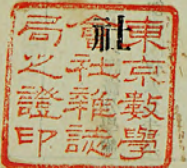 東京數學
會社雜誌
局之證印